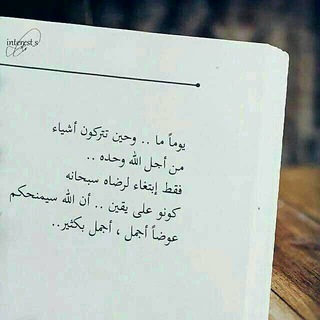 interest.s
يوماً ما .. وحين تتركون أشياء
من أجل الله وحده ..
فقط إبتغاء لرضاه سبحانه
كونو على يقين .. أن الله سيمنحكم
عوضاً أجمل ، أجمل بكثير..